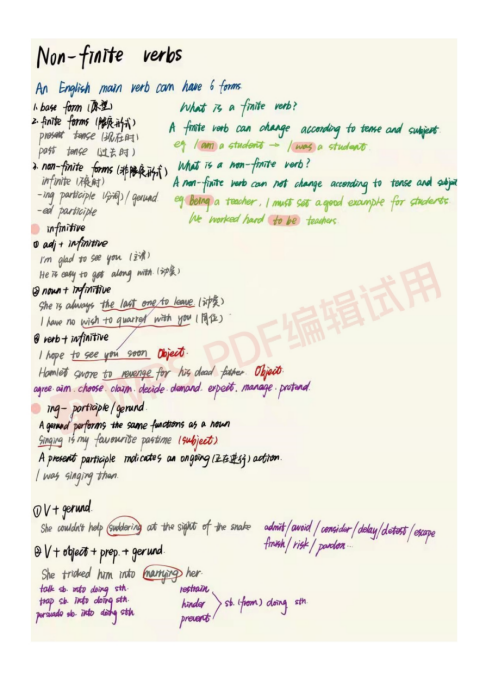 Non-finite verbs
An English main verb can have 6 forms
1. base form (原型)
2. finite forms (限定形式)
present tense (现在时)
past tense (过去时)
3. non-finite forms (非限定形式)
infinite
-ing participle (分词) / gerund
-ed participle
What is a finite verb?
A finite verb can change according to tense and subject
eg I am a student → I was a student.
What is a non-finite verb?
A non-finite verb can not change according to tense and subject
eg Being a teacher, I must set a good example for students
We worked hard to be teachers.
infinitive
① adj + infinitive
I'm glad to see you
He is easy to get along with
② noun + infinitive
She is always the last one to leave
I have no wish to quarrel with you (同位)
③ verb + infinitive
I hope to see you soon Object
Hamlet swore to revenge for his dead father Object
agree. aim. choose. claim. decide. demand. expect. manage. pretend.
ing- participle/gerund.
A gerund performs the same functions as a noun
Singing is my favourite pastime (subject)
A present participle indicates an ongoing (正在进行) action.
I was singing then.
① V + gerund.
She couldn't help at the sight of the snake
admit/avoid/consider/delay/detest/escape
finish/risk/pardon...
② V + object + prep. + gerund.
She tricked him into marrying her.
talk sb. into doing sth.
trap sb. into doing sth.
persuade sb. into doing sth.
restrain
hinder
prevent
sb. (from) doing sth.
PDF编辑试用